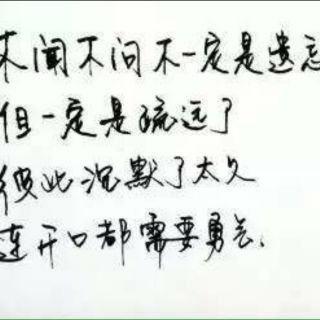 不闻不问不一定是遗忘
但一定是疏远了
彼此沉默了太久
连开口都需要勇气.